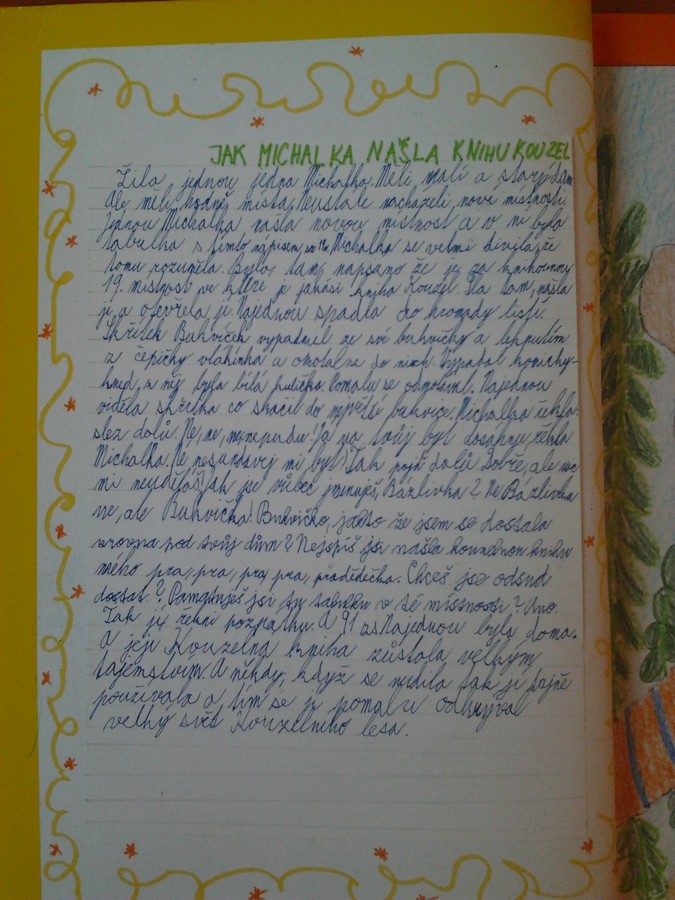 JAK MICHALKA NAŠLA KNIHU KOUZEL
Žila jednou jedna Michalka. Měli malí a starý dům
Ale měli hodně místa. Neustále nacházeli nové místnosti.
Jednou Michalka našla novou místnost a v ní byla
tabulka s tímto nápisem. Michalka se velmi divila, že
tomu rozuměla. Bylo tam napsáno že je za knihovnou
19. místnost ve které je jakási kniha kouzel. Šla tam, našla
ji a otevřela ji. Najednou spadla do hromady listí.
Skřítek Bukvíček vypadnul ze své bukvičky a
z čepičky vlákínka a omotal se do nich. Vypadal
hned, a měj byla bílá kulička. Pomalu se odmotával. Najednou
viděla skřítka co skočil do největší bukvice. Michalka řekla:
slez dolů. Ne, ne, ne! Já na tvůj byt dosáhnu, řekla
Michalka. Ne nesundavej mi byt! Tak pojď dolů. Dobře, ale nic
mi neuděláš! Jak jse vůbec jmenuješ, Bázlivka? Ne Bázlivka
ne, ale Bukvička! Bukvičko, jakto že jsem se dostala
zrovna pod tvůj dům? Nejspíš jsi našla kouzelnou knihu
mého pra, pra, pra, pra, pradědečka. Chceš jse odsud
dostat? Pamatuješ jsi tu tabulku v té místnosti? Ano.
Tak jí řekni pozpátku. A Najednou byla doma.
A její Kouzelná kniha zůstala velkým
tajemstvím. A někdy, když se nudila tak jí tajně
používala a tím se jí pomalu odkrýval
velký svět Kouzelního lesa.